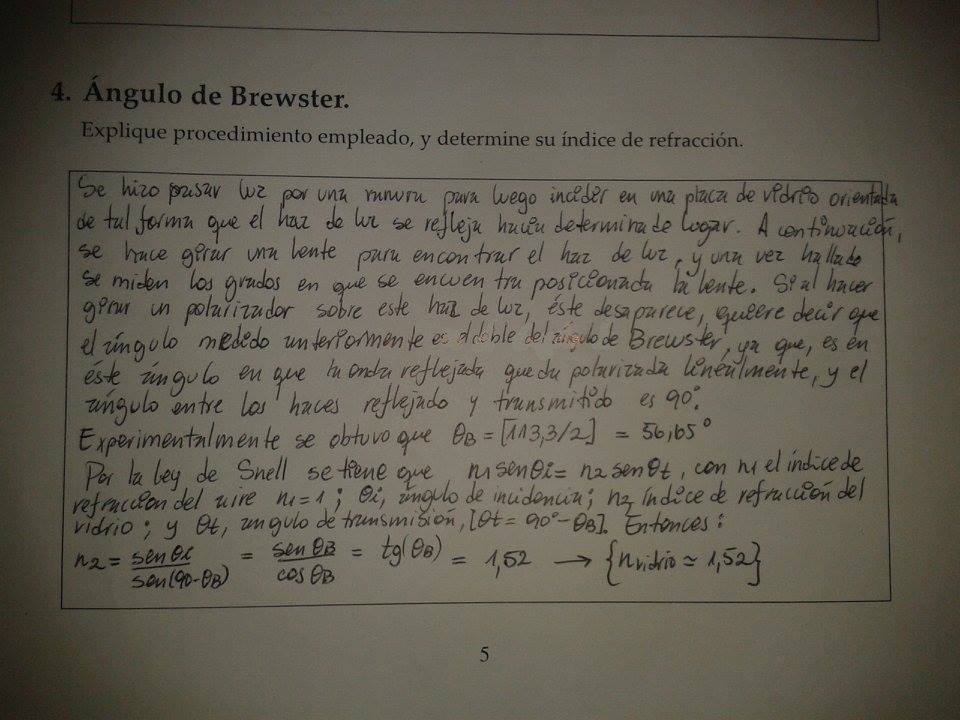 4. Ángulo de Brewster.
Explique procedimiento empleado, y determine su índice de refracción.
Se hizo pasar luz por una ranura para luego incidir en una placa de vidrio orientada
de tal forma que el haz de luz se refleja hacia determinado lugar. A continuación,
se hace girar una lente para encontrar el haz de luz, y una vez hallado
se miden los grados en que se encuentra posicionada la lente. Si al hacer
girar un polarizador sobre este haz de luz, éste desaparece, quiere decir que
el ángulo medido anteriormente es el doble del ángulo de Brewster, ya que, es en
éste ángulo en que la onda reflejada queda polarizada linealmente, y el
ángulo entre los haces reflejado y transmitido es 90°.
Experimentalmente se obtuvo que θB = [113,3/2] = 56,65°
Por la ley de Snell se tiene que n1 sen θi = n2 sen θt, con n1 el índice de
refracción del aire n1 = 1 ; θi, ángulo de incidencia; n2 índice de refracción del
vidrio ; y θt, angulo de transmisión, [θt = 90° - θB]. Entonces :
n2 = sen θi / sen(90 - θB) = sen θB / cos θB = tg(θB) = 1,52 → {n vidrio ≃ 1,52}
5